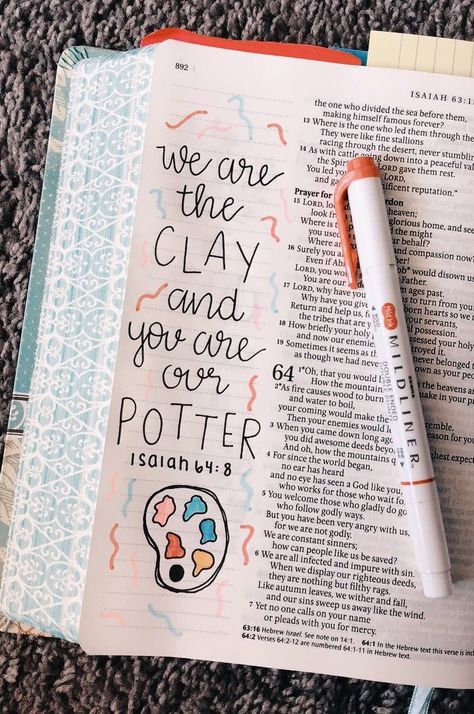 892
ISAIAH 63:1
we are
the
CLAY
and
you are
our
POTTER
Isaiah 64:8
the one who divided the sea before them,
making himself famous forever?
13 Where is the one who led them through the
They were like fine stallions
racing through the desert, never stumbling
14 As with cattle going down into a peaceful val
the Spirit LORD gave them rest.
You led
and ga gnificent reputation."
Prayer for
15 LORD, look heaven;
look from glorious home, and see
Where
you used the might
Where your behalf?
and compassion now?
16 Surely you a
Even if Ab would disown us,
LORD, you
You are our ages past.
17 LORD, why have you turn from you?
Why have you
Return and help us, f
the tribes that are y
18 How briefly your holy
and now our enemies
19 Sometimes it seems as th
as though we had never
64
1 "Oh, that you would b
How the mountain
2 As fire causes wood to burn
and water to boil,
your coming would make the
Then your enemies would l
3 When you came down long ago,
you did awesome deeds beyo
And oh, how the mountains q
4 For since the world began,
no ear has heard
and no eye has seen a God like you,
who works for those who wait fo
5 You welcome those who gladly do go
who follow godly ways.
But you have been very angry with us,
for we are not godly.
We are constant sinners;
how can people like us be saved?
6 We are all infected and impure with sin.
When we display our righteous deeds,
they are nothing but filthy rags.
Like autumn leaves, we wither and fall,
and our sins sweep us away like the wind.
7 Yet no one calls on your name
or pleads with you for mercy.
63:16 Hebrew Israel. See note on 14:1. 64:1 In the Hebrew text this verse is inclu
64:2 Verses 64:2-12 are numbered 64:1-11 in Hebrew text.
MILDLINER
DOUBLE ENDED